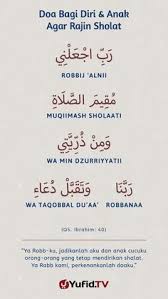 Doa Bagi Diri & Anak
Agar Rajin Sholat
رَبِّ اجْعَلْنِي
ROBBIJ 'ALNII
مُقِيمَ الصَّلَاةِ
MUQIIMASH SHOLAATI
وَمِنْ ذُرِّيَّتِي
WA MIN DZURRIYYATII
رَبَّنَا وَتَقَبَّلْ دُعَاءِ
WA TAQOBBAL DU'AA' ROBBANAA
(QS. Ibrahim: 40)
"Ya Robb-ku, jadikanlah aku dan anak cucuku
orang-orang yang tetap mendirikan shalat.
Ya Rabb kami, perkenankanlah doaku."
Yufid.TV